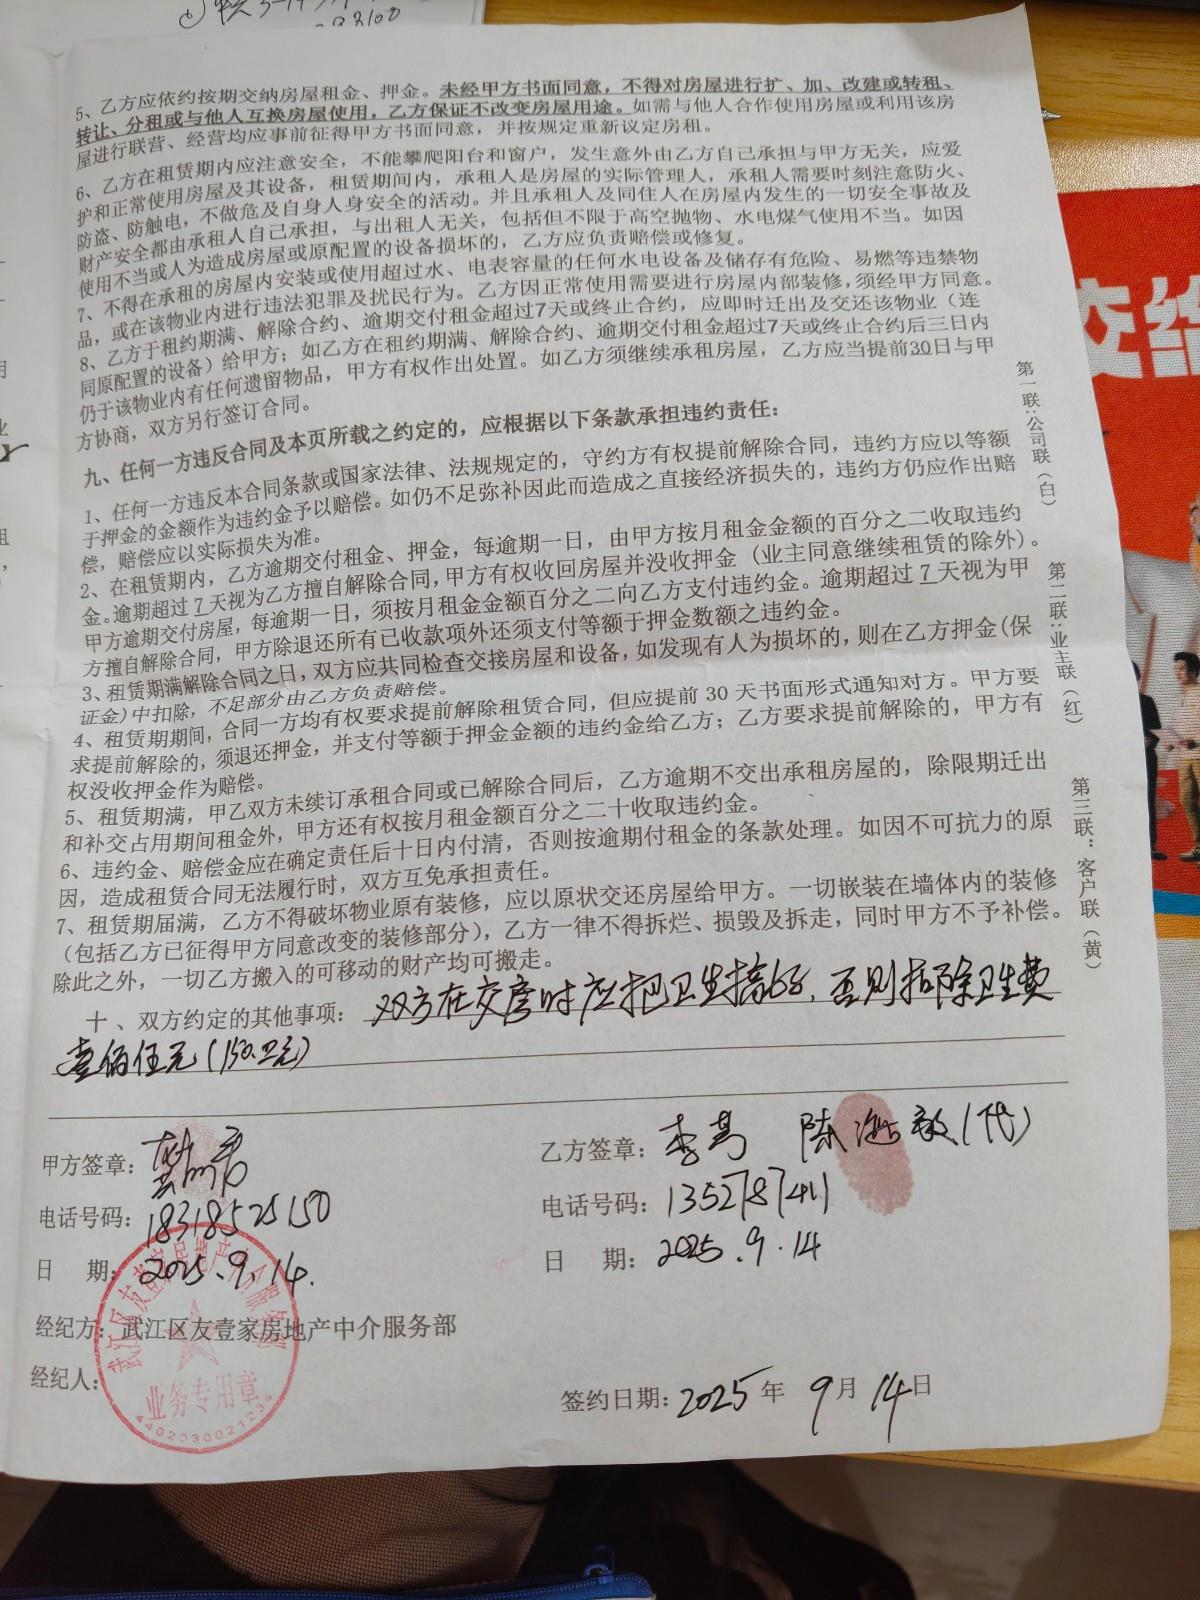 5、乙方应依约按期交纳房屋租金、押金。未经甲方书面同意，不得对房屋进行扩、加、改建或转租、
转让、分租或与他人互换房屋使用，乙方保证不改变房屋用途。如需与他人合作使用房屋或利用该房
屋进行联营、经营均应事前征得甲方书面同意，并按规定重新议定房租。
6、乙方在租赁期内应注意安全，不能攀爬阳台和窗户，发生意外由乙方自己承担与甲方无关，应爱
护和正常使用房屋及其设备，租赁期间内，承租人是房屋的实际管理人，承租人需要时刻注意防火、
防盗、防触电，不做危及自身人身安全的活动。并且承租人及同住人在房屋内发生的一切安全事故及
财产安全都由承租人自己承担，与出租人无关，包括但不限于高空抛物、水电煤气使用不当。如因
使用不当或人为造成房屋或原配置的设备损坏的，乙方应负责赔偿或修复。
7、不得在承租的房屋内安装或使用超过水、电表容量的任何水电设备及储存有危险、易燃等违禁物
品，或在该物业内进行违法犯罪及扰民行为。乙方因正常使用需要进行房屋内部装修，须经甲方同意。
8、乙方于租约期满、解除合约、逾期交付租金超过7天或终止合约，应即时迁出及交还该物业（连
同原配置的设备）给甲方；如乙方在租约期满、解除合约、逾期交付租金超过7天或终止合约后三日内
仍于该物业内有任何遗留物品，甲方有权作出处置。如乙方须继续承租房屋，乙方应当提前30日与甲
方协商，双方另行签订合同。
九、任何一方违反合同及本页所载之约定的，应根据以下条款承担违约责任：
1、任何一方违反本合同条款或国家法律、法规规定的，守约方有权提前解除合同，违约方应以等额
于押金的金额作为违约金予以赔偿。如仍不足弥补因此而造成之直接经济损失的，违约方仍应作出赔
偿，赔偿应以实际损失为准。
2、在租赁期内，乙方逾期交付租金、押金，每逾期一日，由甲方按月租金金额的百分之二收取违约
金。逾期超过 7 天视为乙方擅自解除合同，甲方有权收回房屋并没收押金（业主同意继续租赁的除外）。
甲方逾期交付房屋，每逾期一日，须按月租金金额百分之二向乙方支付违约金。逾期超过 7 天视为甲
方擅自解除合同，甲方除退还所有已收款项外还须支付等额于押金数额之违约金。
3、租赁期满解除合同之日，双方应共同检查交接房屋和设备，如发现有人为损坏的，则在乙方押金(保
证金)中扣除，不足部分由乙方负责赔偿。
4、租赁期期间，合同一方均有权要求提前解除租赁合同，但应提前 30 天书面形式通知对方。甲方要
求提前解除的，须退还押金，并支付等额于押金金额的违约金给乙方；乙方要求提前解除的，甲方有
权没收押金作为赔偿。
5、租赁期满，甲乙双方未续订承租合同或已解除合同后，乙方逾期不交出承租房屋的，除限期迁出
和补交占用期间租金外，甲方还有权按月租金额百分之二十收取违约金。
6、违约金、赔偿金应在确定责任后十日内付清，否则按逾期付租金的条款处理。如因不可抗力的原
因，造成租赁合同无法履行时，双方互免承担责任。
7、租赁期届满，乙方不得破坏物业原有装修，应以原状交还房屋给甲方。一切嵌装在墙体内的装修
（包括乙方已征得甲方同意改变的装修部分），乙方一律不得拆烂、损毁及拆走，同时甲方不予补偿。
除此之外，一切乙方搬入的可移动的财产均可搬走。
十、双方约定的其他事项：双方在交房时应把卫生搞好，否则扣除卫生费
壹佰伍元(150.
甲方签章：
电话号码：18318525150
日 期：2025.9.14.
乙方签章：李 陈 (代)
电话号码：13527874111
日 期：2025.9.14
经纪方：武江区友壹家房地产中介服务部
经纪人：
签约日期：2025年 9月 14日
武江区友壹家房地产中介服务部
业务专用章
4402030021234
第一联：公司联（白）
第二联：业主联（红）
第三联：客户联（黄）